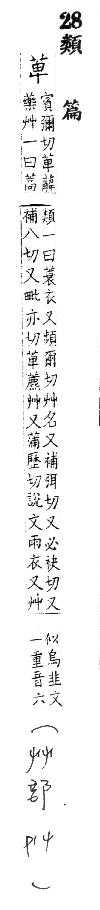 28類篇
萆
賓彌切萆蘺
藥艸一曰萵
類一曰蓑衣又頻爾切艸名又補弭切又必袂切又
補八切又毗亦切萆薦艸又蒲歷切說文雨衣又艸
似烏韭文
一重音六
(艸部 P14)